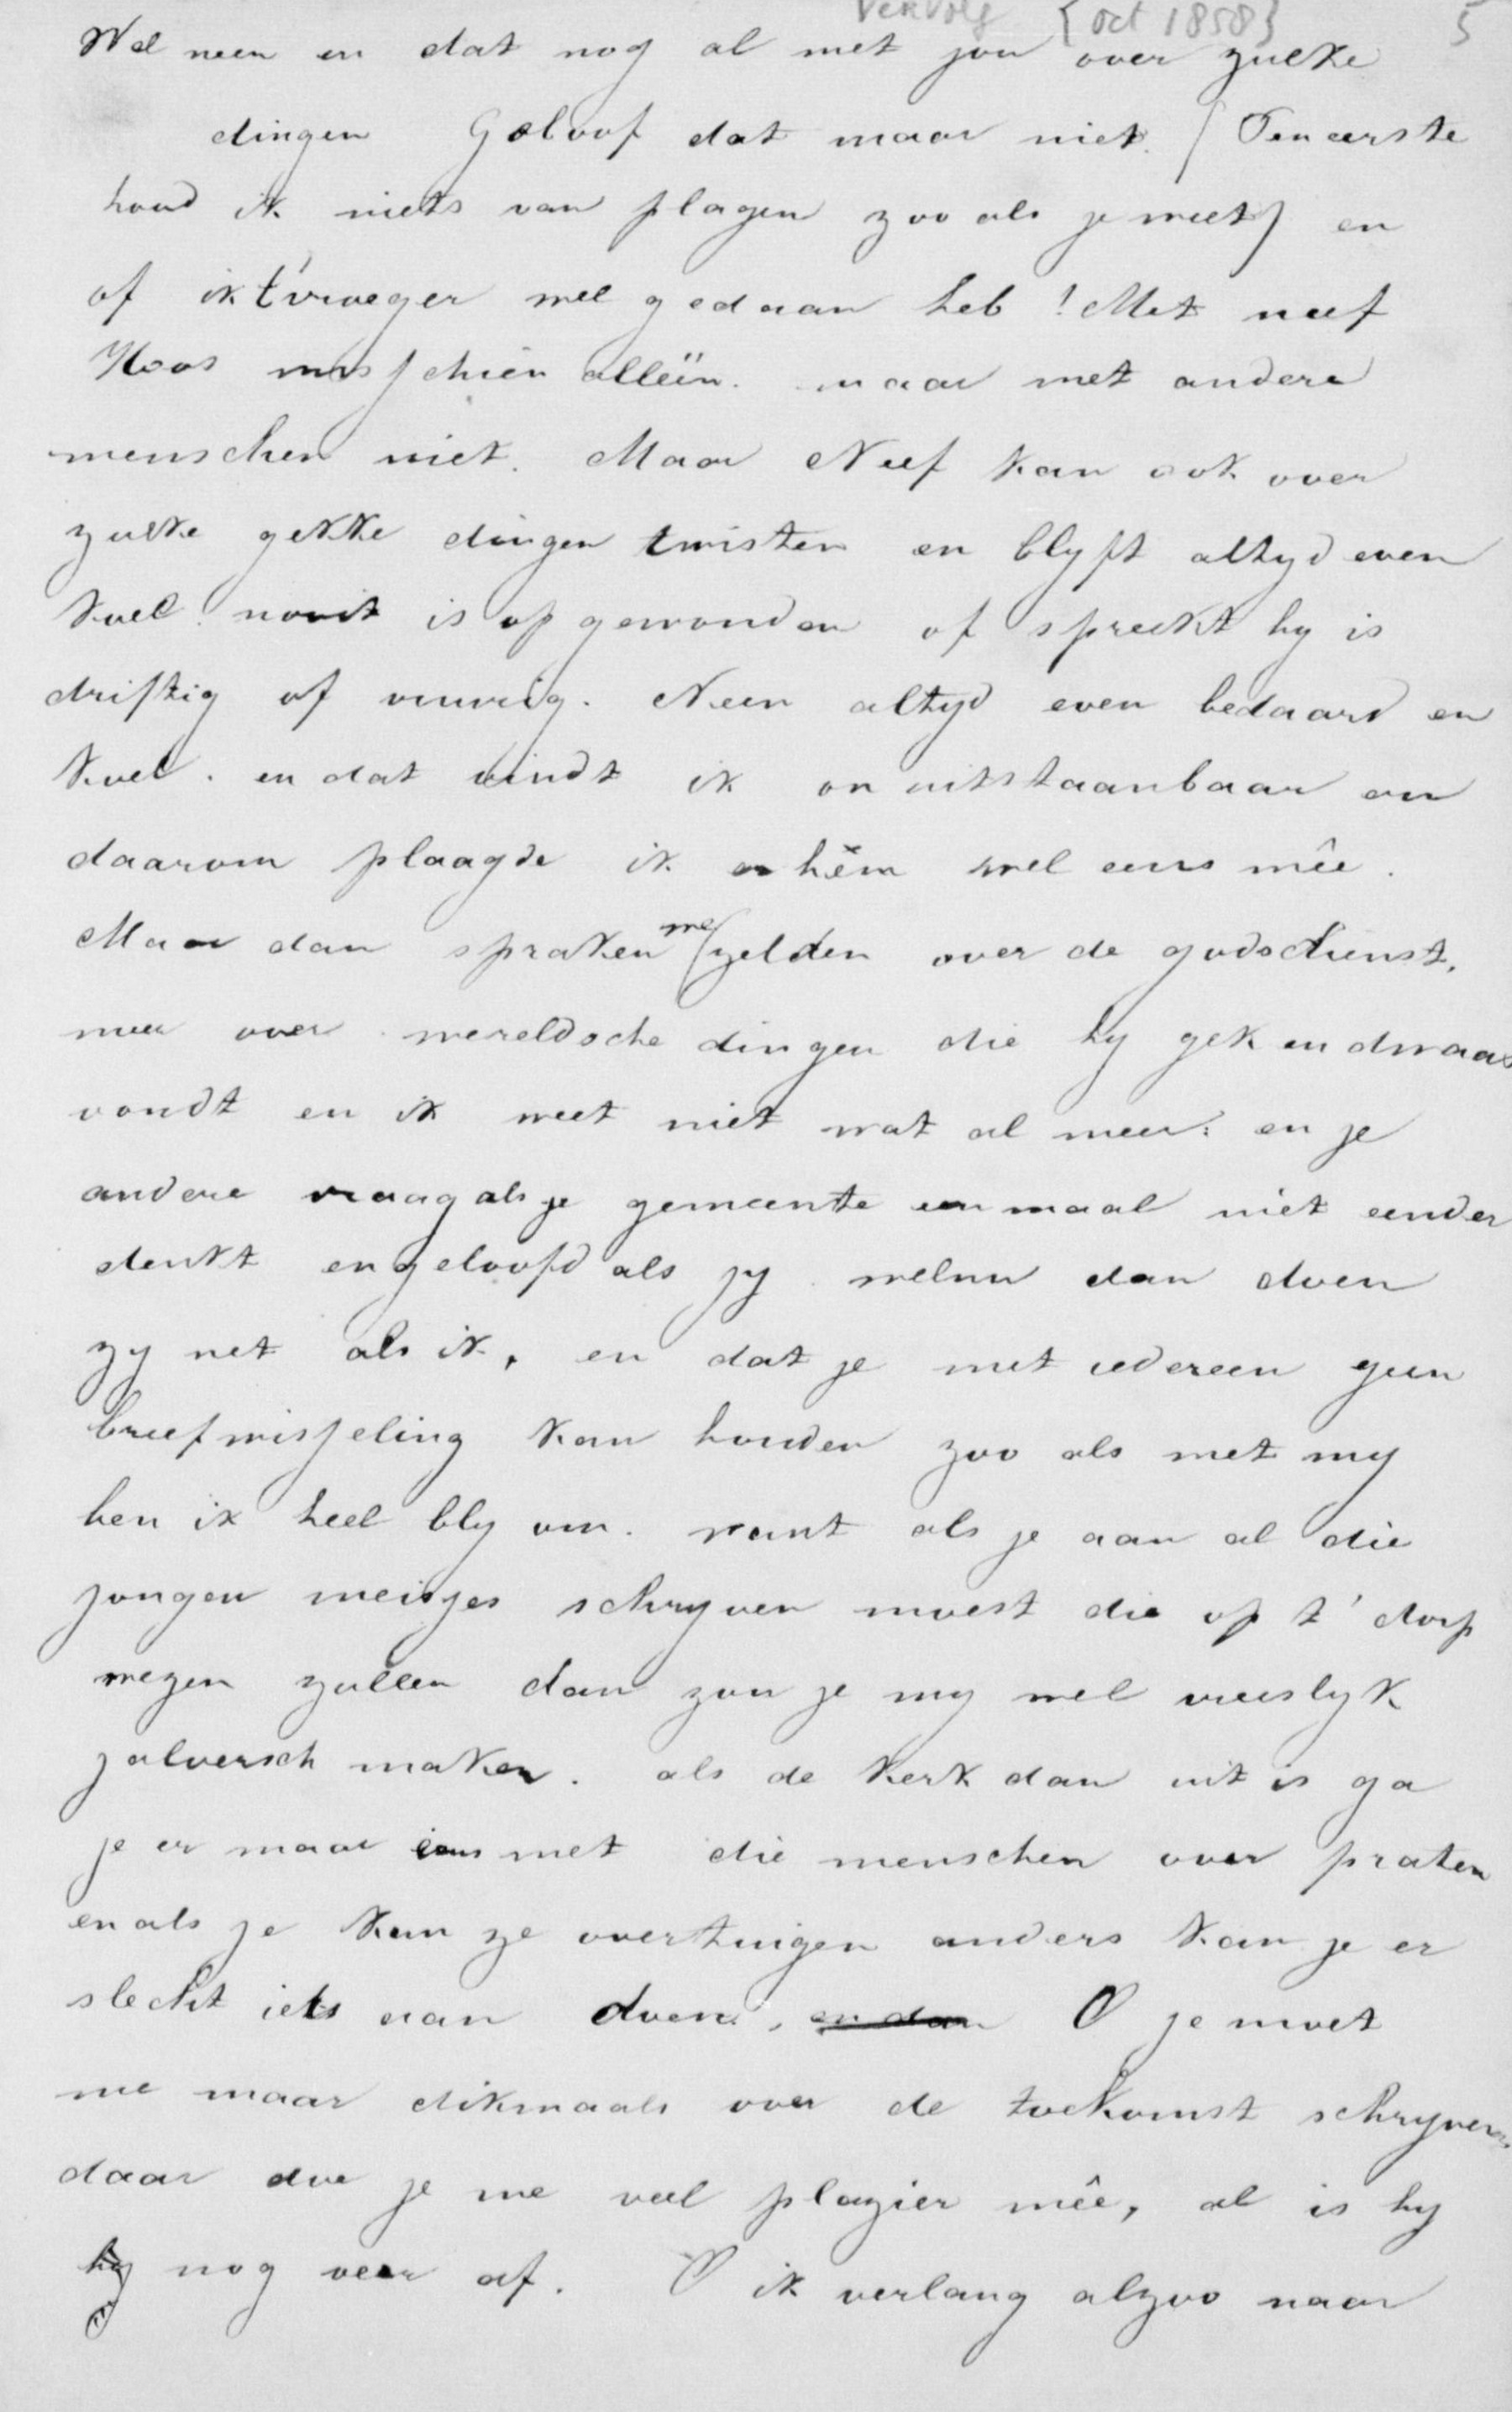 Vervolg {Oct 1858} 5
Wel neen en dat nog al met jou over zulke
dingen Geloof dat maar niet. (Ten eerste
houd ik niets van plagen zoo als je weet) en
of ik t'vroeger wel gedaan heb! Met neef
Koos misschien alleën. maar met andere
menschen niet. Maar Neef kan ook over
zulke gekke dingen twisten en blyft altyd even
koel. nooit is opgewonden of spreekt hy is
driftig of vuurig. Neen altyd even bedaard en
koel. en dat vindt ik onuitstaanbaar en
daarom plaagde ik er hem wel eens mêe.
Maar dan spraken we zelden over de godsdienst,
meer over wereldsche dingen die hy gek en dwaas
vondt en ik weet niet wat al meer: en je
andere vraag als je gemeente eenmaal niet eender
denkt en geloofd als jy. welnu dan doen
zy net als ik, en dat je met iedereen geen
briefwisseling kan houden zoo als met my
ben ik heel bly om. want als je aan al die
jongen meisjes schryven moest die op t' dorp
wezen zullen dan zou je my wel vreeslyk
jaloersch maken. als de kerk dan uit is ga
je er maar eens met die menschen over praten
en als je kan ze overtuigen anders kan je er
slecht iets aan doen, en dan O je moet
me maar dikmaals over de toekomst schryven
daar doe je me veel plazier mêe, al is hy
hy nog veer af. O ik verlang alzoo naar